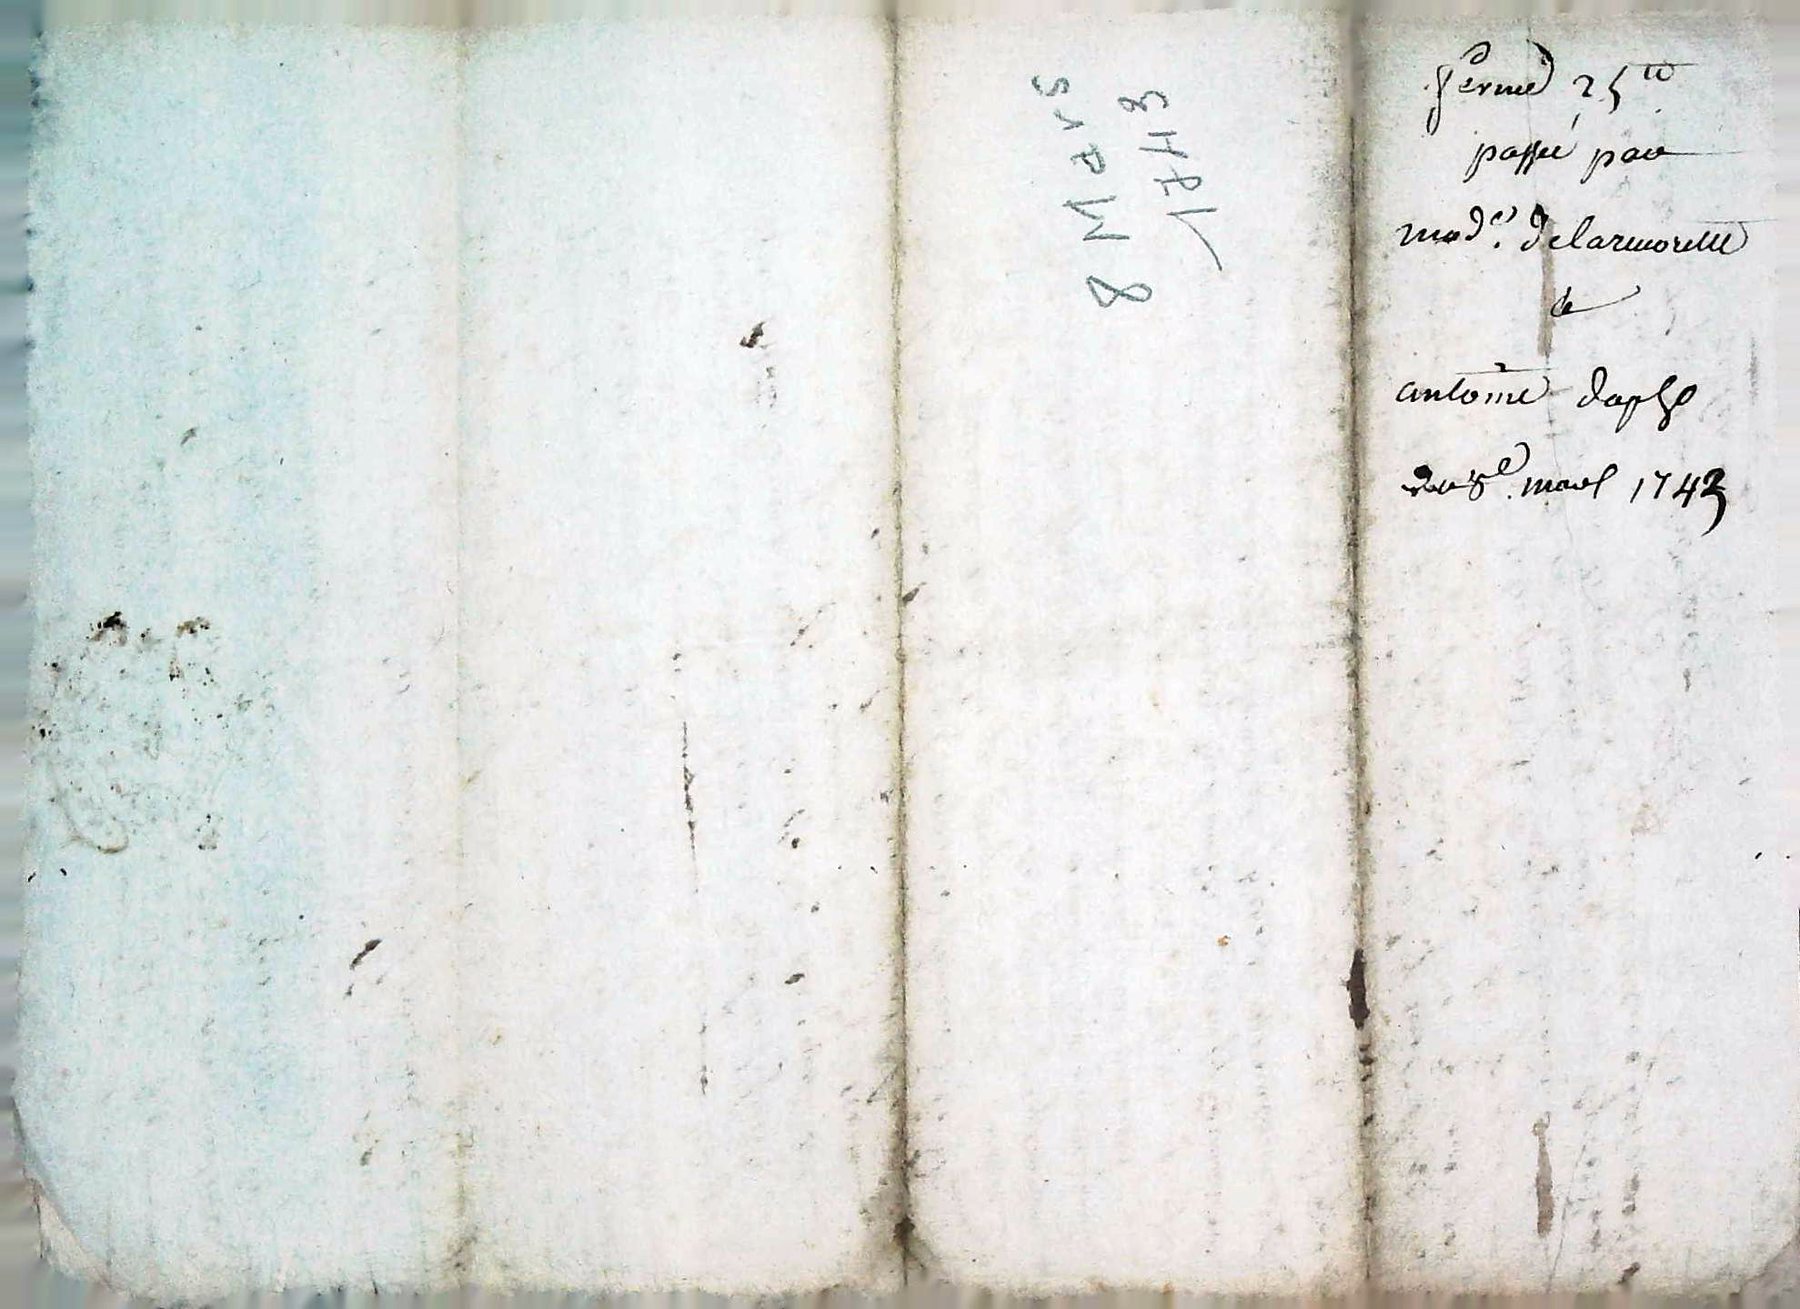 8 Mars
1743
ferme 25 tt
passé par
made. delarmorelle
a
antoine
du 8e. mars 1743